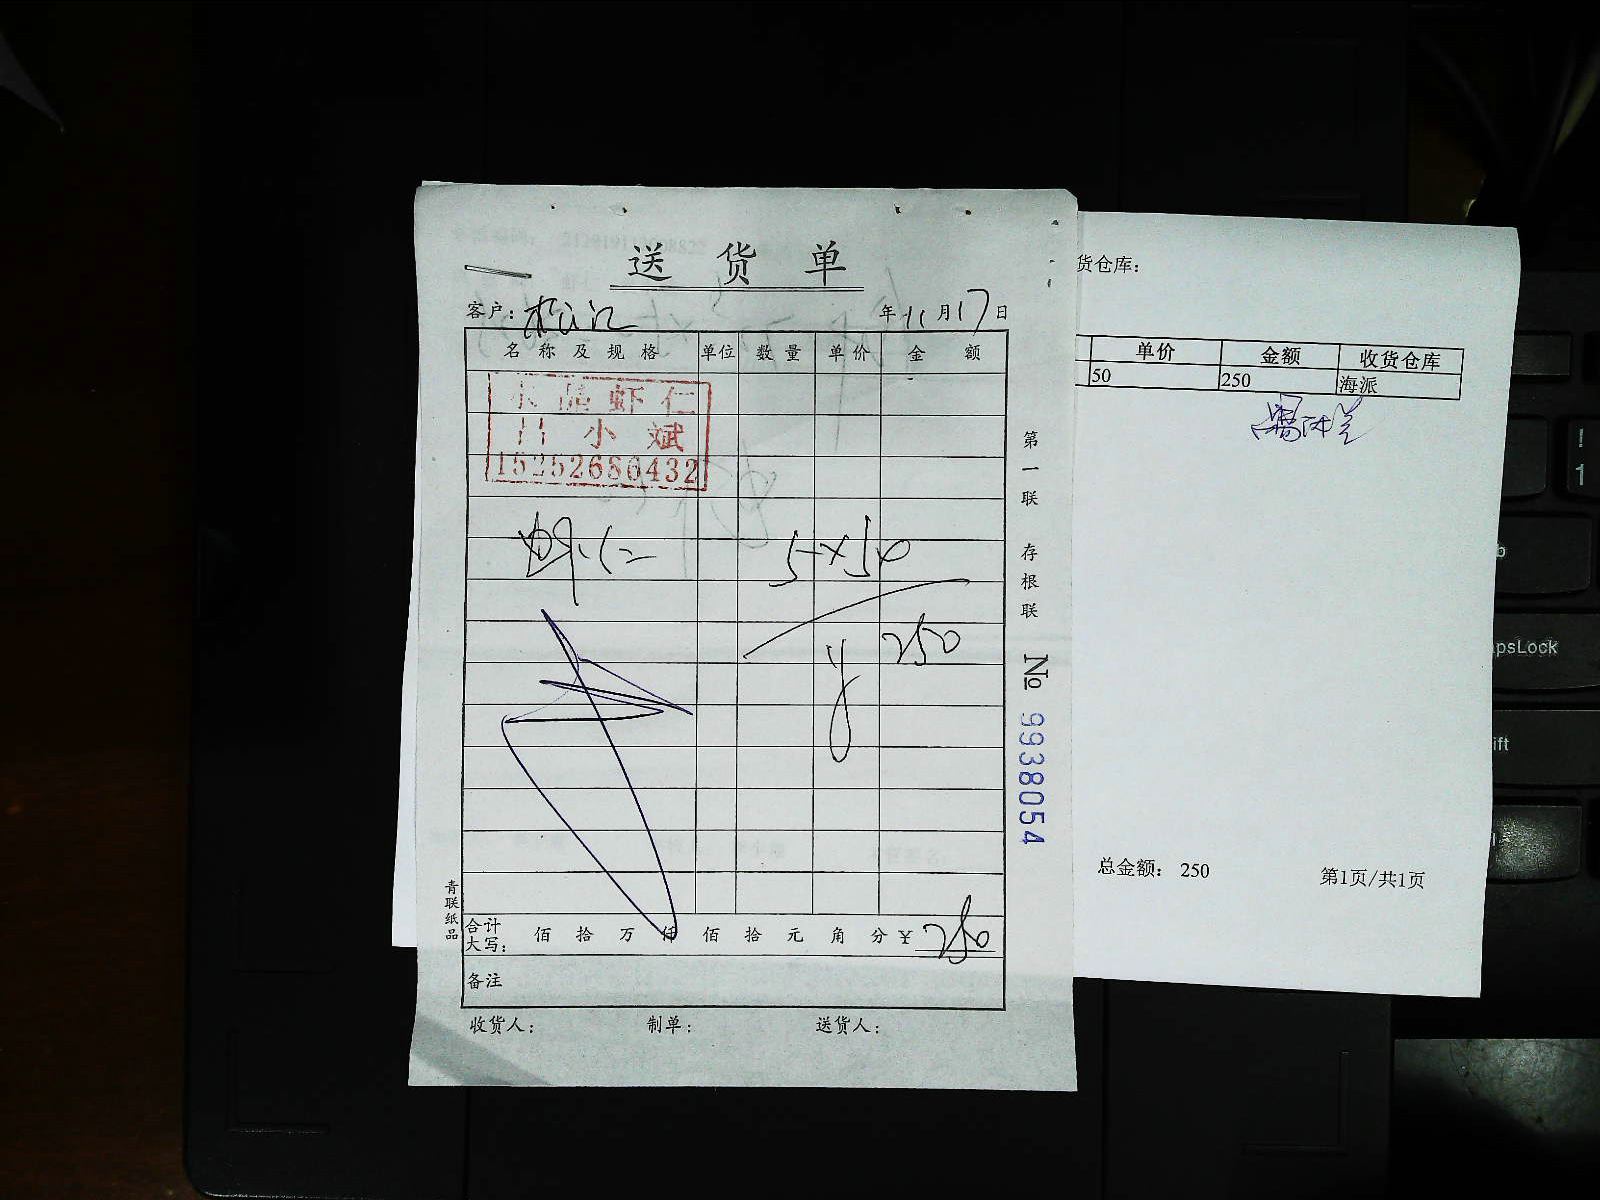 送货单
客户：松江 年11月17日
名称及规格 单位 数量 单价 金额
水晶虾仁
小斌
15252686432
虾仁 5×50
250
合计大写： 佰 拾 万 仟 佰 拾 元 角 分 ¥ 250
备注
收货人： 制单： 送货人：
第一联 存根联
No 9938054
青联纸品
货仓库：
单价 金额 收货仓库
50 250 海派
总金额： 250 第1页/共1页
!
1
b
psLock
ift